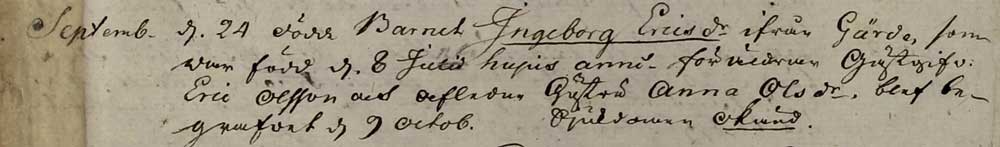 Septemb. d. 24 dödde Barnet Ingeborg Ericsdr ifrån Gärde, som
war född d. 8 Julii hujus anni. föräldrar Gästgifv:
Eric Olsson och afledne Hustru Anna Olsdr, blef be-
grafvet d 9 Octob. Sjukdomen okänd.